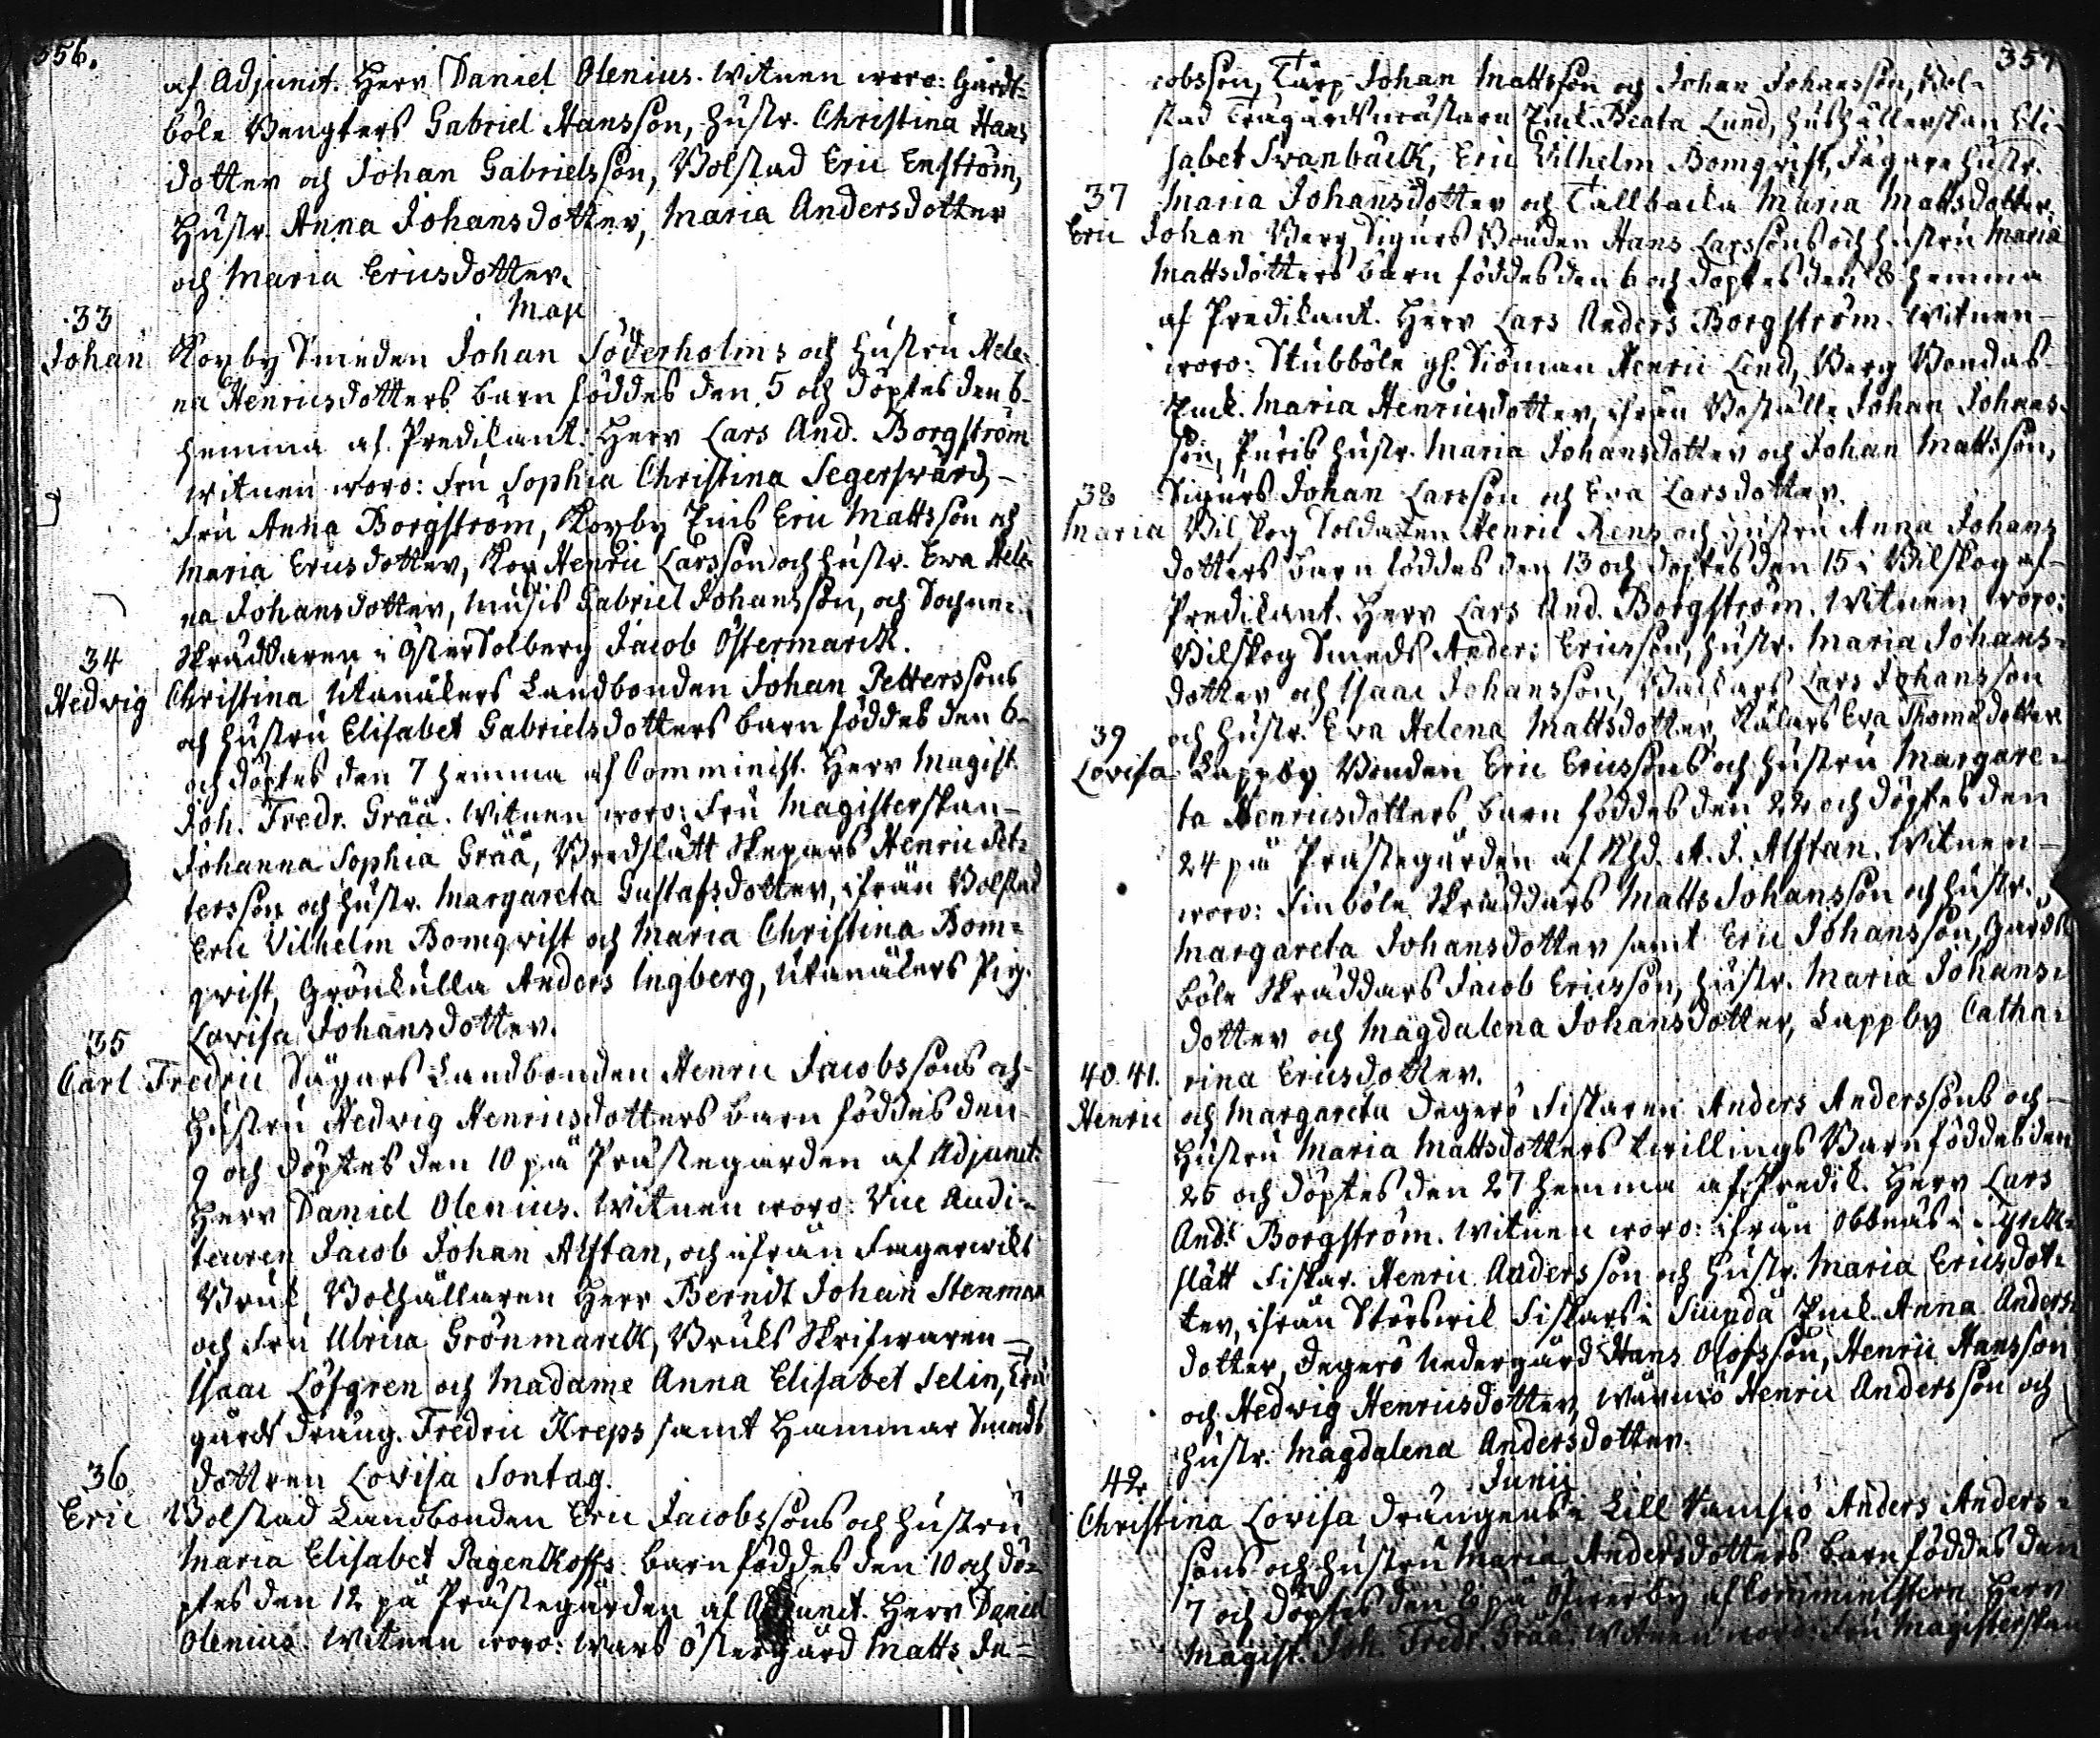 356.
af Adjunct. Herr Daniel Olenius. Witnen woro: Gårds-
böle Bengters Gabriel Hansson, Hustr. Christina Hans
dotter och Johan Gabrielsson, Bolstad Eric Enström,
Hustr. Anna Johansdotter, Maria Andersdotter
och Maria Ericsdotter.
Maji
33
Johan Korby Smeden Johan Söderholms och Hustru Hele-
na Henricsdotters barn föddes den 5 och döptes den 6
hemma af Predikant. Herr Lars And. Borgström
witnen woro: Fru Sophia Christina Segersvärd,
Fru Anna Borgström, Korby Eric Mattsson och
Maria Ericsdotter, Henric Larsson och Hustr. Eva Hele-
na Johansdotter, Gabriel Johansson, och Sochne-
Skräddaren i Öster Solberg Jacob Östermarck.
34
Hedvig Christina Utanåkers Landbonden Johan Petterssons
och Hustru Elisabet Gabrielsdotters barn föddes den 6
och döptes den 7 hemma af Comminist. Herr Magist.
Joh. Fredr. Grää. Witnen woro: Fru Magisterskan
Johanna Sophia Grää, Bredslätt Skepars Henric Pet-
tersson och Hustr. Margareta Gustafsdotter, ifrån Bolstad
Eric Vilhelm Bomqvist och Maria Christina Bom-
qvist, Grönkulla Anders Ingberg, Utanåkers Pig.
Lovisa Johansdotter.
35
Carl Fredric Sågars Landbonden Henric Jacobssons och
Hustru Hedvig Henricsdotters barn föddes den
9 och döptes den 10 på Prästegården af Adjunct.
Herr Daniel Olenius. Witnen woro: Vice Audi-
teuren Jacob Johan Alftan, och ifrån Fagerwiks
Bruk Bokhållaren Herr Berndt Johan Stenman
och Fru Ulrica Grönmarck, Bruks Skrifwaren
Isaac Löfgren och Madame Anna Elisabet Selin,
gårds Dräng. Fredric Kreps samt Hammar Smeds
dottren Lovisa Sontag.
36
Eric Bolstad Landbonden Eric Jacobssons och Hustru
Maria Elisabet Pagenkoffs barn föddes den 10 och dö-
ptes den 12 på Prästegården af Adjunct. Herr Daniel
Olenius. Witnen woro: Wars Östergård Matts Ja-
357
cobsson, Johan Mattsson och Johan Johansson, Bol-
stad Trägårdsmästare Enk. Beata Lund, Hushållerskan Eli-
sabet Svanbäck, Eric Vilhelm Bomqvist, Hustr.
Maria Johansdotter och Tallbacka Maria Mattsdotter.
37
Eric Johan Berg Sigurs Bonden Hans Larssons och Hustru Maria
Mattsdotters barn föddes den 6 och döptes den 8 hemma
af Predikant. Herr Lars Anders Borgström. Witnen
woro: Stubböle Henric Lind, Berg Bondas
Enk. Maria Henricsdotter, ifrån Johan Johans-
son, Puris Hustr. Maria Johansdotter och Johan Mattsson,
Sigurs Johan Larsson och Eva Larsdotter.
38
Maria Bilskog Soldaten Henric Rens och Hustru Anna Johans
dotters barn föddes den 13 och döptes den 15 i Bilskog af
Predikant. Herr Lars And. Borgström. Witnen woro:
Bilskog Smeds Anders Ericsson, Hustr. Maria Johans-
dotter och Isaac Johansson, Lars Johansson
och Hustr. Eva Helena Mattsdotter, Eva Thomædotter
39
Lovisa Lappby Bonden Eric Ericssons och Hustru Margare-
ta Henricsdotters barn föddes den 22 och döptes den
24 på Prästegården af A. J. Alftan. Witnen
woro: Finböle Skräddars Matts Johansson och Hustr.
Margareta Johansdotter samt Eric Johansson, Gårds-
böle Skräddars Jacob Ericsson, Hustr. Maria Johans-
dotter och Magdalena Johansdotter, Lappby Catha-
rina Ericsdotter.
40. 41.
Henric och Margareta Degerö Fiskaren Anders Anderssons och
Hustru Maria Mattsdotters twillings Barn föddes den
26 och döptes den 27 hemma af Predik. Herr Lars
And. Borgström. Witnen woro: ifrån Obbnäs i Kyrk-
slätt Fiskar. Henric Andersson och Hustr. Maria Ericsdot-
ter, ifrån Störswik Fiskars i Siundå Enk. Anna Anders-
dotter, Degerö Nedergård Hans Olofsson, Henric Hansson
och Hedvig Henricsdotter, Wormö Henric Andersson och
Hustr. Magdalena Andersdotter.
Junij
42
Christina Lovisa Drängens i Lill Ramsiö Anders Anders-
sons och Hustru Maria Andersdotters barn föddes den
7 och döptes den 8 på af Comministern Herr
Magist. Joh. Fredr. Grää. Witnen woro: Fru Magisterskan